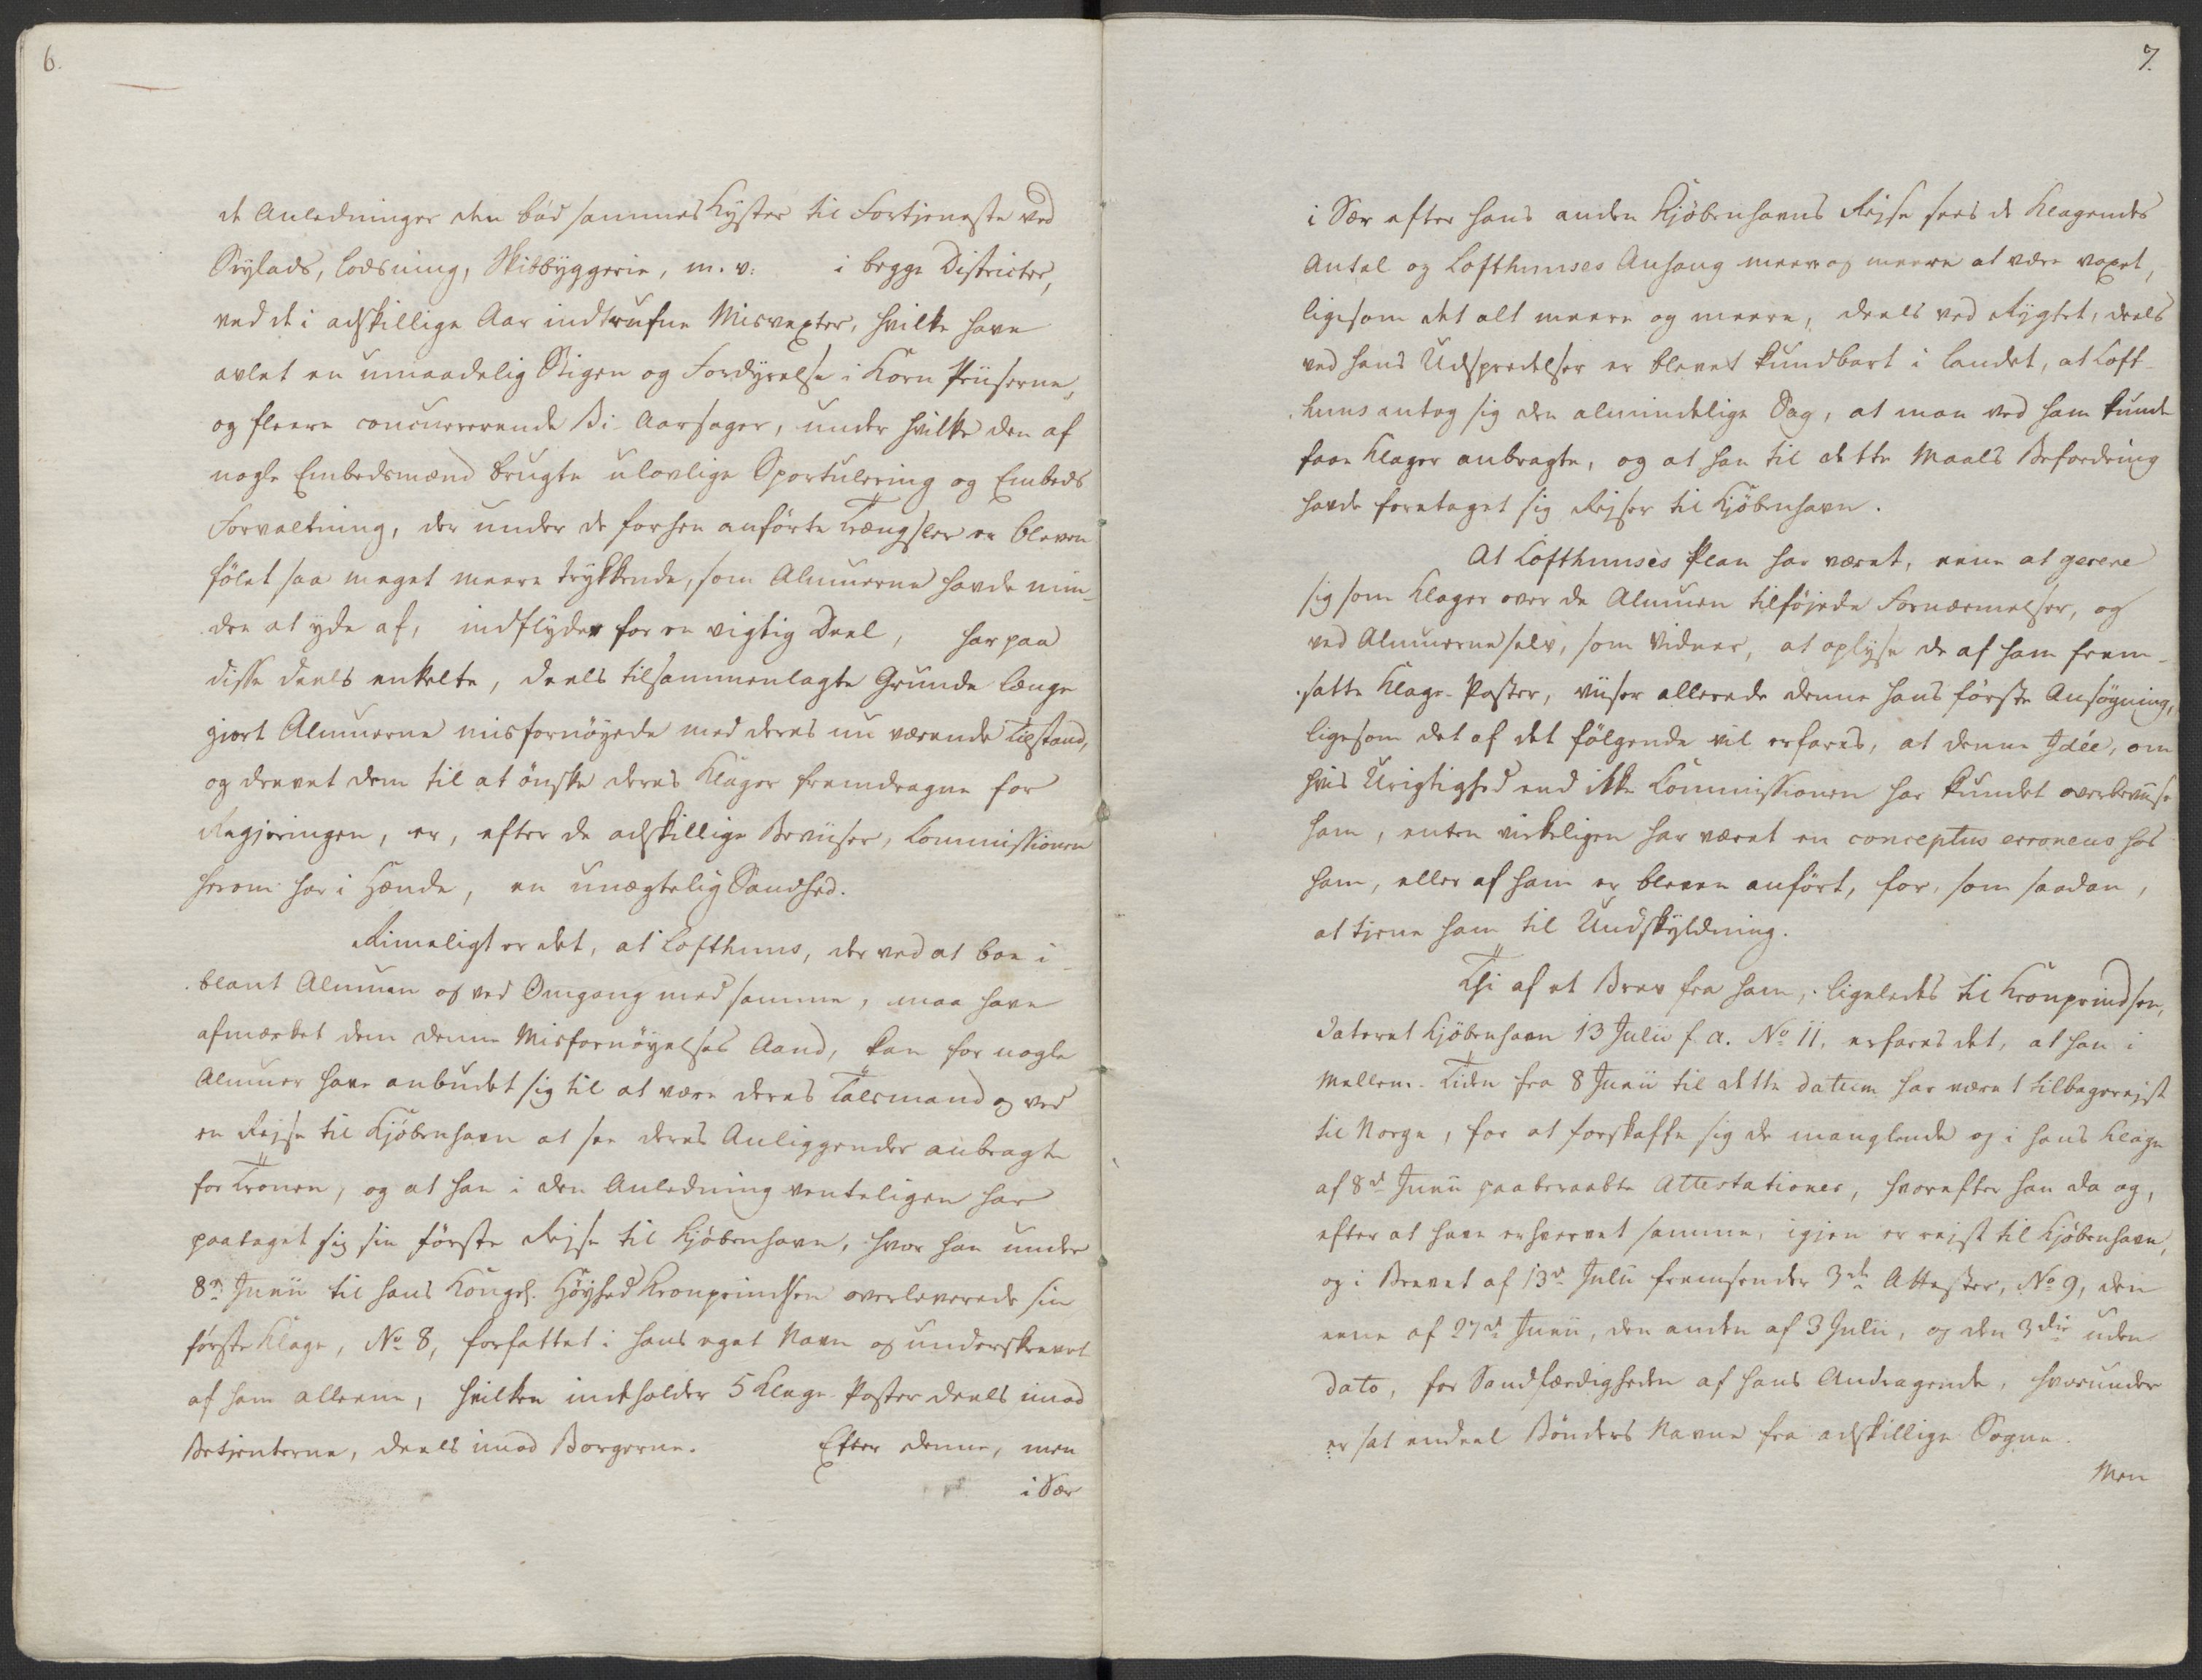 6.
de Anledninger den bød sammes Kyster til Fortjeneste ved
Seylads, lodsning, Skibbyggerie, m. v: i begge Districter,
ved de i adskillige Aar indtrufne Misvexter, hvilke have
avlet en umaadelig Stigen og Fordyrelse i Korn Priiserne,
og fleere concurrerende Bi-Aarsager, under hvilke den af
nogle Embedsmænd brugte ulovlige Sportulering og Embeds
Forvaltning, der under de forhen anførte Trængsler er bleven
følet saa meget meere trykkende, som Almuerne havde min-
dre at yde af, indflyder for en vigtig Deel, har paa
disse deels enkelte, deels tilsammenlagte Grunde længe
gjort Almuerne misfornøyede med deres nu værende Tilstand,
og drevet dem til at ønske deres Klager fremdragne for
Regjeringen, er, efter de adskillige Beviiser, Commissionen
herom har i Hænde, en unægtelig Sandhed.
Rimeligt er det, at Lofthuus, der ved at boe i-
blant Almuen og ved Omgang med samme, maa have
afmærket dem denne Misfornøyelses Aand, kan for nogle
Almuer have anbudet sig til at være deres Talsmand og ved
en Rejse til Kjøbenhavn at see deres Anliggender anbragte
for Tronen, og at han i den Anledning venteligen har
paataget sig sin første Rejse til Kjøbenhavn, hvor han under
8de Junii til hans Kongel. Høyhed Kronprindsen overleverede sin
første Klage, No 8, forfattet i hans eget Navn og underskrevet
af ham alleene, hvilken indeholder 5 Klage-Poster deels imod
Betjenterne, deels imod Borgerne. Efter denne, men
i Sær
7.
i Sær efter hans anden Kjøbenhavns Rejse sees de Klagendes
Antal og Lofthuuses Anhang meer og meere at være voxet,
ligesom det alt meere og meere, deels ved Rygtet, deels
ved hans Udspredelser er blevet kundbart i Landet, at Loft-
huus antog sig den almindelige Sag, at man ved ham kunde
faae Klager anbragte, og at han til dette Maals Befordring
havde foretaget sig Rejser til Kjøbenhavn.
At Lofthuuses Plan har været, eene at gerere
sig som Klager over de Almuen tilføjede Fornærmelser, og
ved Almuerne selv, som Vidner, at oplyse de af ham frem-
satte Klage-Poster, viiser allerede denne hans første Ansøgning,
ligesom det af det følgende vil erfares, at denne Idée, om
hvis Urigtighed end ikke Commissionen har kundet overbeviise
ham, enten virkeligen har været en conceptus erroneus hos
ham, eller af ham er bleven anført, for, som saadan,
at tjene ham til Undskyldning.
Thi af et Brev fra ham, ligeledes til Kronprindsen,
dateret Kjøbenhavn 13 Julii s. a. No 11, erfares det, at han i
Mellem-Tiden fra 8 Junii til dette datum har været tilbagerejst
til Norge, for at forskaffe sig de manglende og i hans Klage
af 8de Junii paaberaabte Attestationer, hvorefter han da og,
efter at have erhvervet samme, igjen er rejst til Kjøbenhavn,
og i Brevet af 13de Julii fremsender 3de Attester, No 9, den
eene af 27de Junii, den anden af 3 Julii, og den 3die uden
dato, for Sandfærdigheden af hans Andragende, hvorunder
er sat endeel Bønders Navne fra adskillige Sogne.
Men